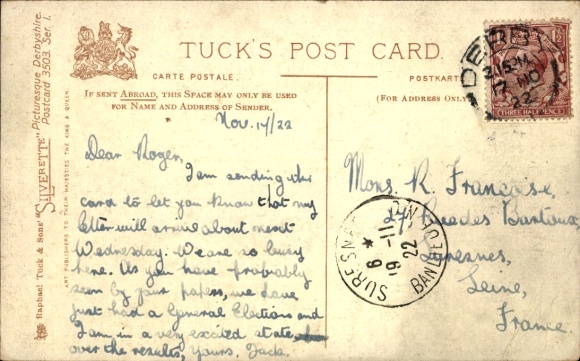 TUCK'S POST CARD.
CARTE POSTALE.
POSTKARTE
IF SENT ABROAD, THIS SPACE MAY ONLY BE USED
FOR NAME AND ADDRESS OF SENDER.
(FOR ADDRESS ONLY
Nov. 17/22
Dear Roger,
I am sending this
card to let you know that my
letter will arrive about next
Wednesday. We are so busy
here. As you have probably
seen by your papers, we have
just had a General Elections and
I am in a very excited state
over the results, yours, Jack.
Mons. R. Françoise,
27, Rue des
Suresnes,
Seine,
France.
DERBY
17 NO
22
THREE HALF PENCE
SURESNES
6 *
19 - 11
22
Raphael Tuck & Sons' "SILVERETTE" Picturesque Derbyshire.
Postcard 3503. Ser. I.
ART PUBLISHERS TO THEIR MAJESTIES THE KING & QUEEN.